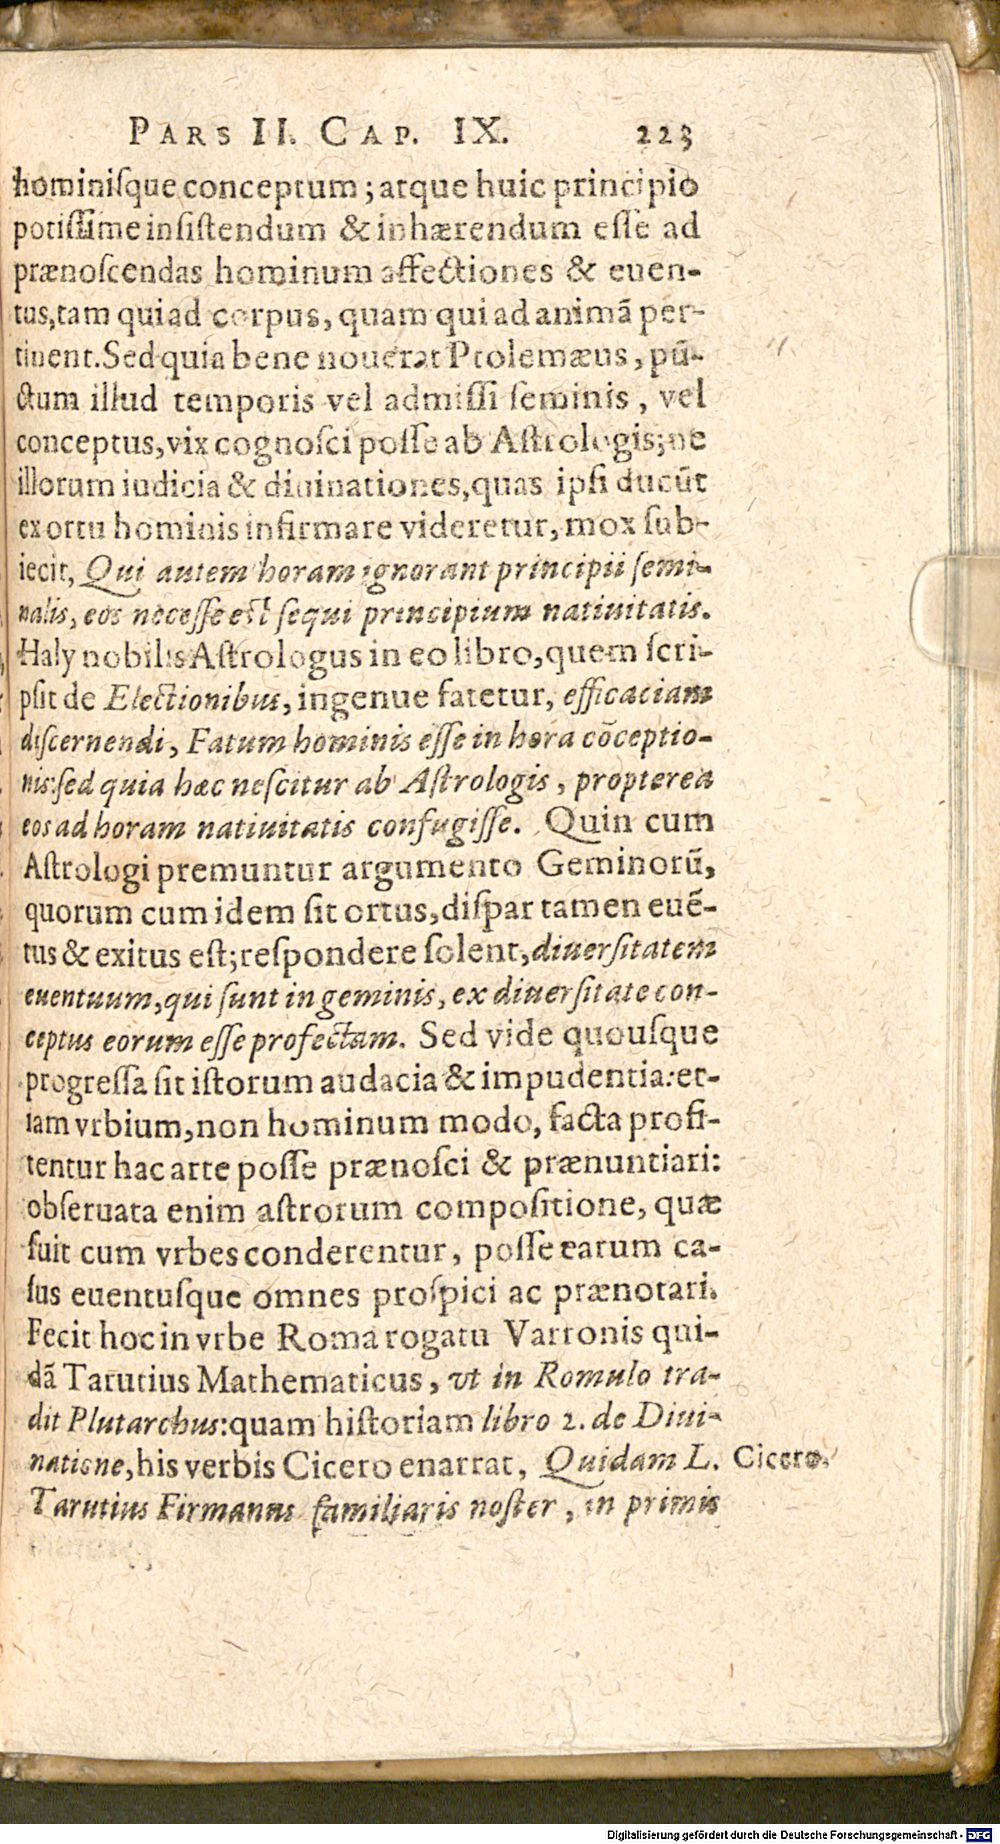 PARS II. CAP. IX. 223
hominiſque conceptum; atque huic principio
potiſſime inſiſtendum & inhærendum eſſe ad
prænoſcendas hominum affectiones & euen-
tus, tam qui ad corpus, quam qui ad animã per-
tinent. Sed quia bene nouerat Ptolemæus, pũ-
ctum illud temporis vel admiſſi ſeminis, vel
conceptus, vix cognoſci poſſe ab Aſtrologis; ne
illorum iudicia & diuinationes, quas ipſi ducũt
ex ortu hominis infirmare videretur, mox ſub-
iecit, Qui autem horam ignorant principii ſemi-
nalis, eos neceſſe eſt ſequi principium natiuitatis.
Haly nobilis Aſtrologus in eo libro, quem ſcri-
pſit de Electionibus, ingenue fatetur, efficaciam
diſcernendi, Fatum hominis eſſe in hora cõceptio-
nis: ſed quia hæc neſcitur ab Aſtrologis, propterea
eos ad horam natiuitatis confugiſſe. Quin cum
Aſtrologi premuntur argumento Geminorũ,
quorum cum idem ſit ortus, diſpar tamen euẽ-
tus & exitus eſt; reſpondere ſolent, diuerſitatem
euentuum, qui ſunt in geminis, ex diuerſitate con-
ceptus eorum eſſe profectam. Sed vide quouſque
progreſſa ſit iſtorum audacia & impudentia: et-
iam vrbium, non hominum modo, facta profi-
tentur hac arte poſſe prænoſci & prænuntiari:
obſeruata enim aſtrorum compoſitione, quæ
fuit cum vrbes conderentur, poſſe earum ca-
ſus euentuſque omnes proſpici ac prænotari.
Fecit hoc in vrbe Roma rogatu Varronis qui-
dã Tarutius Mathematicus, vt in Romulo tra-
dit Plutarchus: quam hiſtoriam libro 2. de Diui-
natione, his verbis Cicero enarrat, Quidam L. Cicero.
Tarutius Firmanus familiaris noſter, in primis
Digitalisierung gefördert durch die Deutsche Forschungsgemeinschaft - DFG